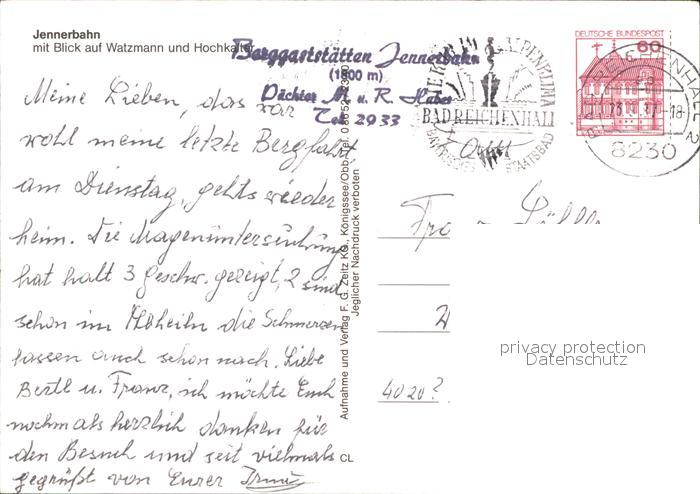 Jennerbahn
mit Blick auf Watzmann und Hochkalter
Berggaststätten Jennerbahn
(1800 m)
Pächter M. u. R. Huber
Tel 2933
DEUTSCHE BUNDESPOST
60
ALPENKLIMA
BAD REICHENHALL
BAYERISCHES STAATSBAD
BAD REICHENHALL 2
-18
8230
Meine Lieben, das war
wohl meine letzte Bergfahrt,
am Dienstag, gehts wieder
heim. Die Magenuntersuchung
hat halt 3 Geschw. gezeigt, 2 sind
schon im Abheiln die Schmerzen
lassen auch schon nach. Liebe
Bertl u. Franz, ich möchte Euch
nochmals herzlich danken für
den Besuch und seit vielmals
gegrüßt von Eurer Irmi
Aufnahme und Verlag F. G. Zeitz KG., Königssee/Obb.
Jeglicher Nachdruck verboten
CL
4020?
privacy protection
Datenschutz